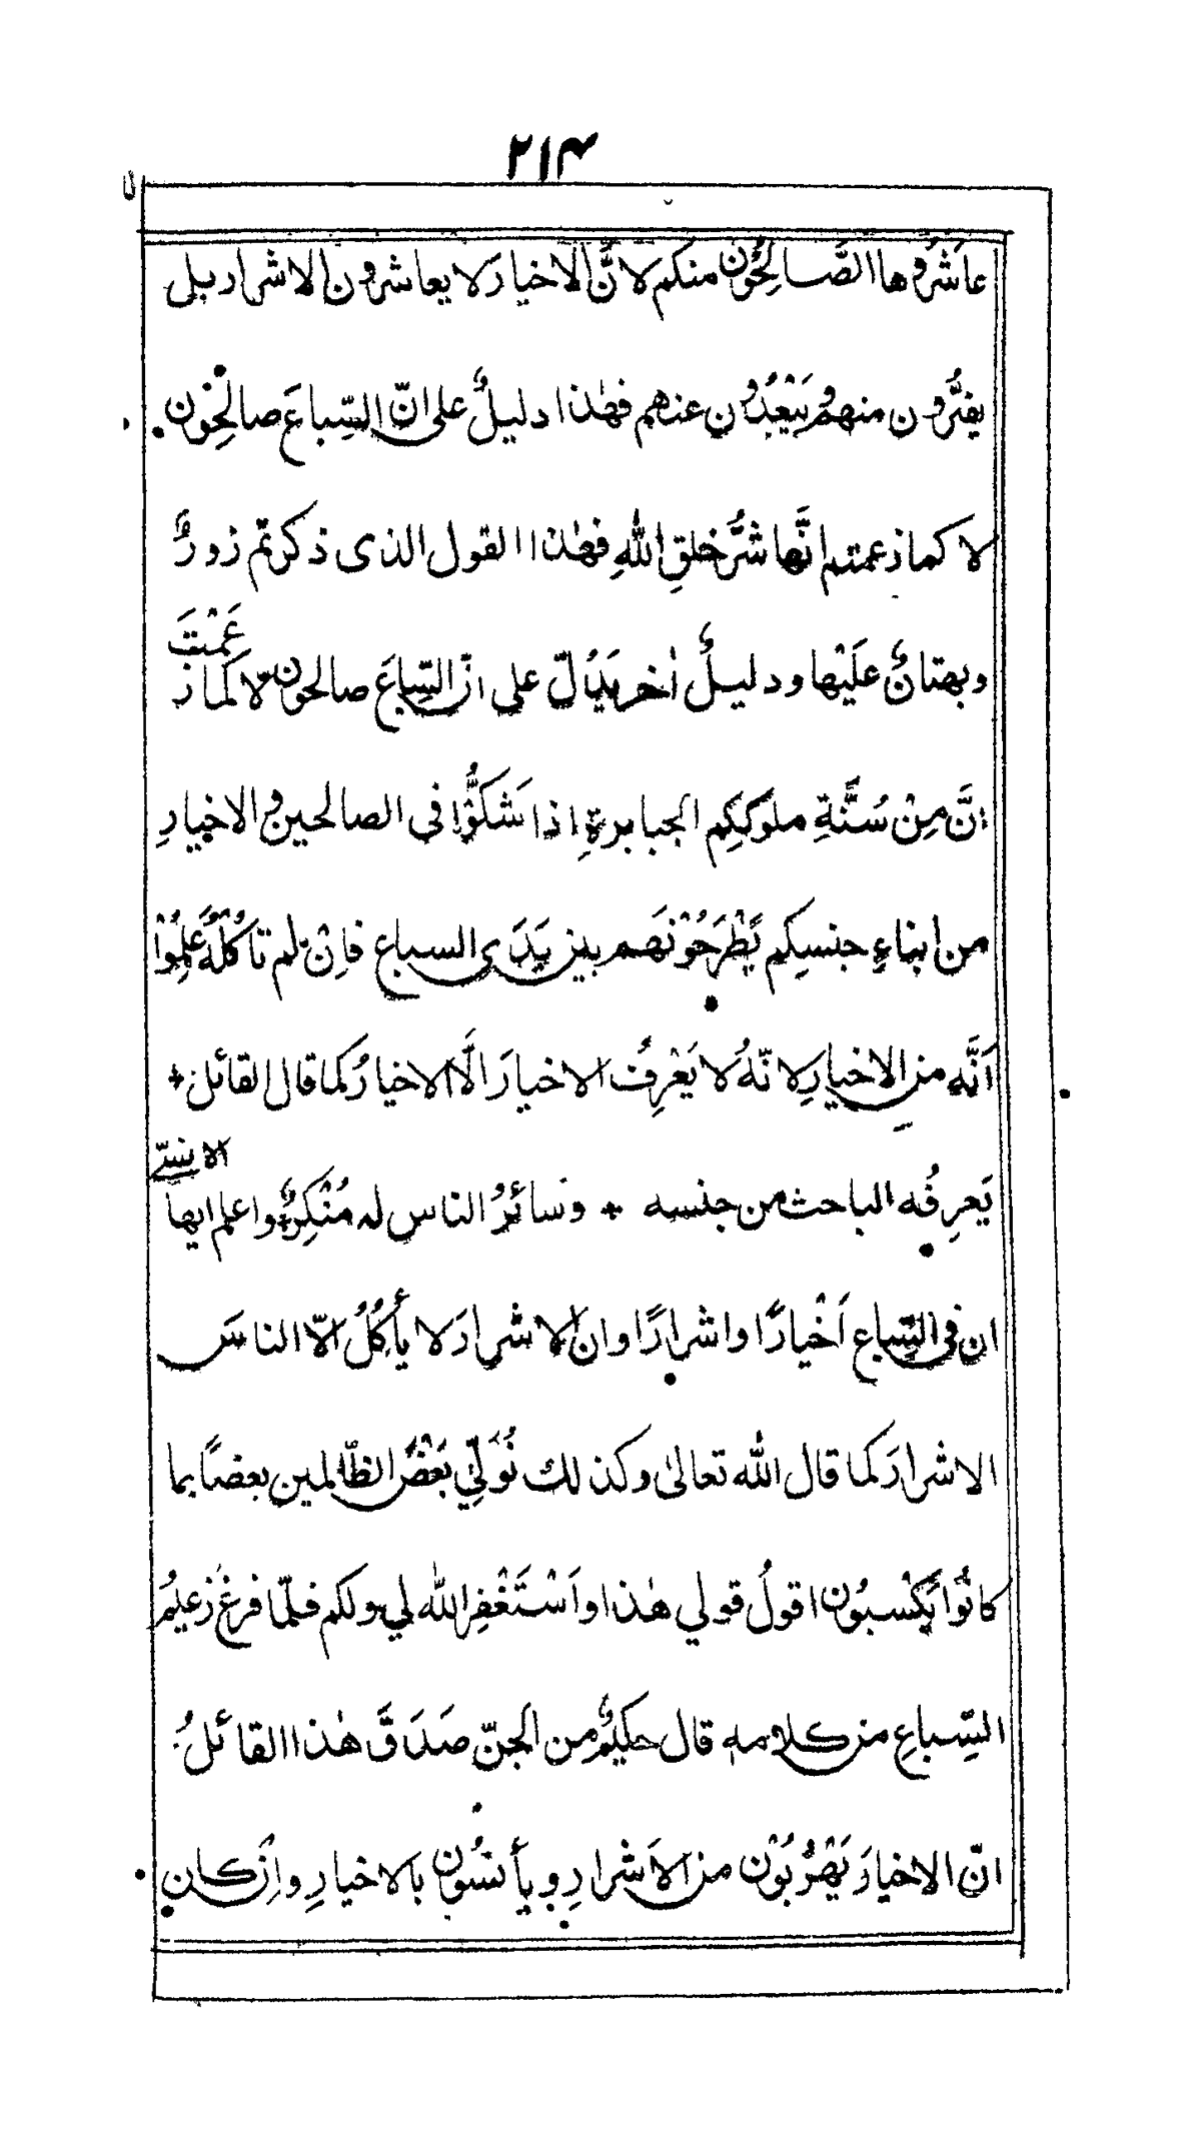 ۲۱۴
عاَشَرُوها الصَّالِحُوْن منكم لانَّ الاخيارَ لا يعاشرون الاشرار بل
يفِرُّون منهم و يَبْعُدُون عنهم فهٰذا دليلٌ على انّ السِّباعَ صالِحُون
لا كما زعمتم انَّها شرُّ خلقِ اللّٰهِ فهٰذا القول الذى ذكرتم زورٌ
وبهتانٌ عَلَيْها ودليلٌ اٰخر يَدُلّ على انّ السِّباعَ صالحون لا كما زعَمْتَ
انَّ مِنْ سُنَّةِ ملوكِكِم الجبابرةِ اذا شَكُّوْا فى الصالحين والاخيارِ
من ابناءِ جنسِكِم يَطْرَحُوْنَهم بين يَدَىِ السباع فاِنْ لم تاكُلْهُ عَلِمُوْا
اَنَّه من الاخيارِ لانّهُ لا يَعْرِفُ الاخيارَ الَّا الاخيارُ كما قال القائل
يَعرِفُه الباحث من جنسه وسائرُ الناس له مُنْكِرٌ واعلم ايها الانسىّ
ان فى السِّباع اَخْيارًا واشرارًا وان الاشرارَ لا يأكُلُ الّا الناسَ
الاشرارَ كما قال اللّٰه تعالىٰ وكذلك نُوَلِّيْ بَعْضَ الظّالمين بعضًا بما
كانُوْا يَكْسِبُون اقولُ قولي هٰذا واَسْتَغْفِرُ اللّٰه لي ولكم فلمّا فرغَ زعيمُ
السِّباعِ من كلامه قال حكيمٌ من الجنّ صَدَقَ هٰذا القائلُ
انّ الاخيارَ يَهْرُبُوْن من الاَشرارِ ويأنسُون بالاخيارِ واِنْ كان